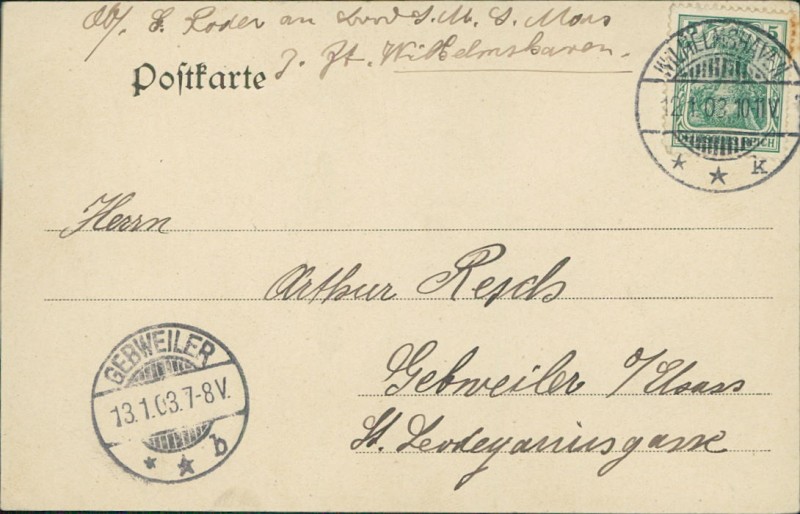 an Bord S.M.S. Mars
Postkarte z. Zt. Wilhelmshaven.
5
WILHELMSHAVEN
12.1.03.10-11V.
REICH
* * K
Herrn
Arthur Resch
GEBWEILER
13.1.03.7-8V.
* * b
Gebweiler o/Elsass
St. Leodegariusgasse